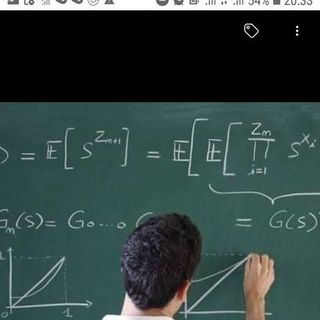 54% 20:33
) = 𝔼[S^{Z_{m+1}}] = 𝔼[𝔼[∏_{i=1}^{Z_m} S^{X_i}
G_m(S) = G∘...∘ = G(S)
1
0 1